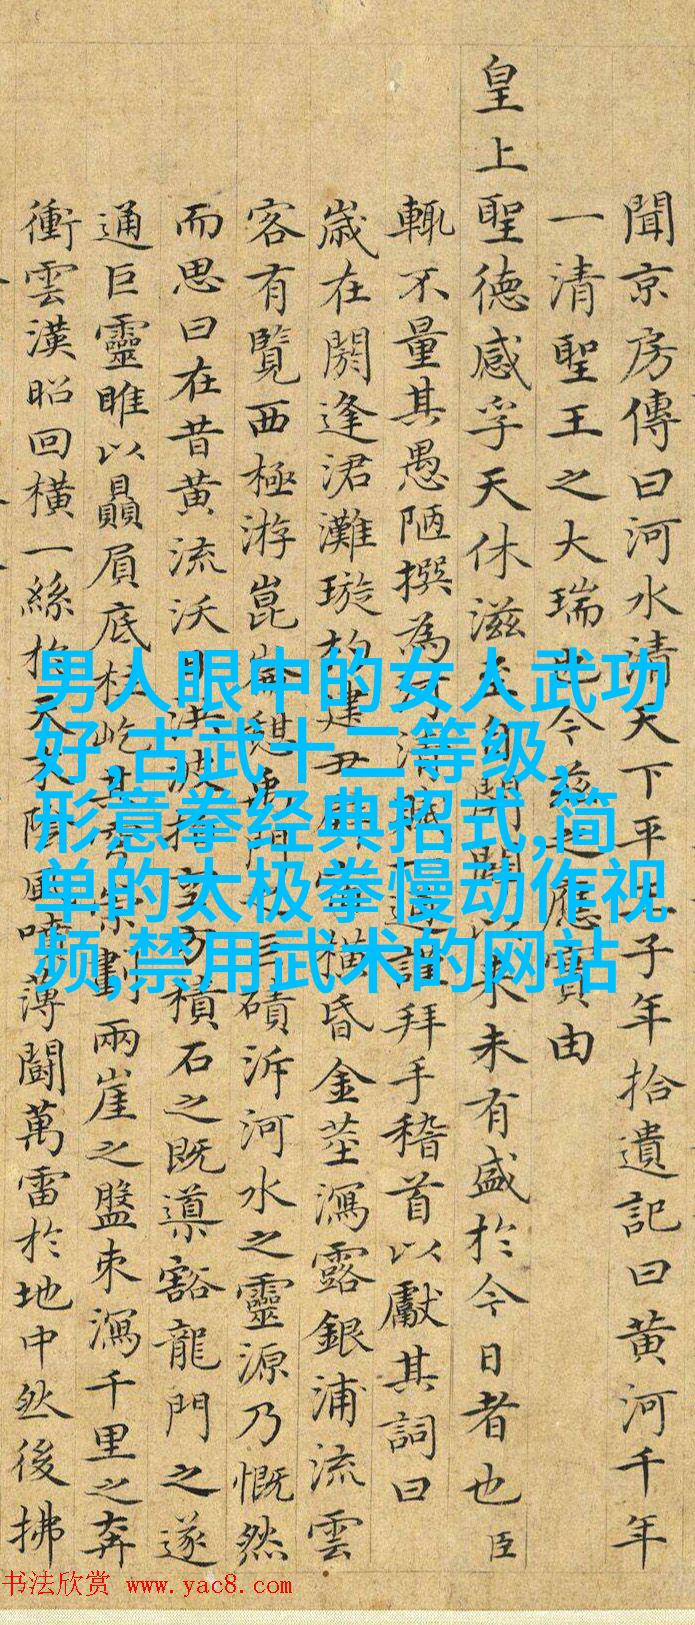 聞京房傳曰河水清天下平子年拾遺記曰黄河千年
一清聖王之大瑞也今茲之應實由
皇上聖德感孚天休滋至自開闢以来未有盛於今日者也臣
輒不量其愚陋撰為河清賦一通謹拜手稽首以獻其詞曰
歲在閼逢涒灘璇杓建丑橫昏金莖瀉露銀浦流雲
客有覽西極游崑崙禹門之三磧泝河水之靈源乃慨然
而思曰在昔黄流沃日洪波接方積石之既導豁龍門之遂
通巨靈睢以贔屓底柱屹其劃兩崖之盤束瀉千里之奔
衝雲漢昭回橫一絲於天陰風薄鬪萬雷於地中然後拂
男人眼中的女人武功
好,古武十二等级,
形意拳经典招式,简
单的太极拳慢动作视
频,禁用武术的网站
书法欣赏 www.yac8.com